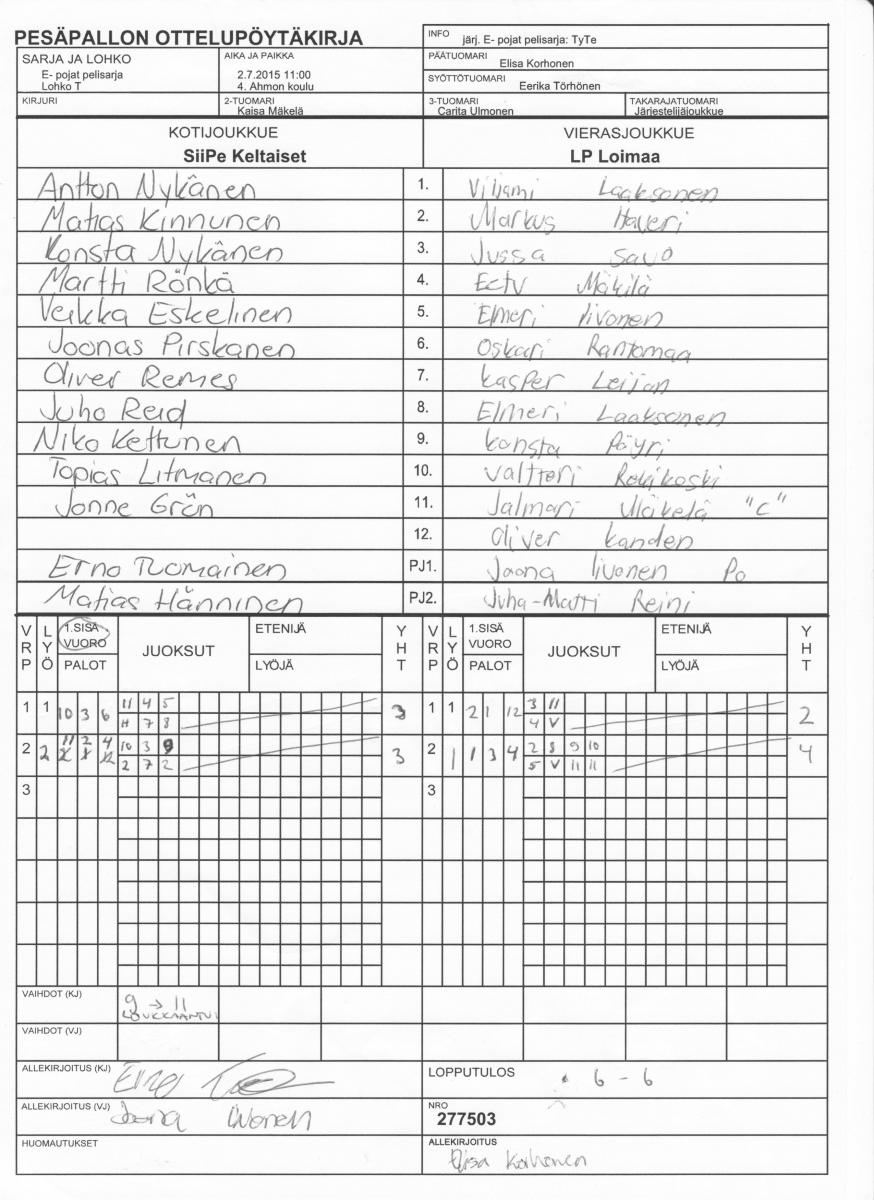 PESÄPALLON OTTELUPÖYTÄKIRJA
INFO järj. E- pojat pelisarja: TyTe
SARJA JA LOHKO
E- pojat pelisarja
Lohko T
AIKA JA PAIKKA
2.7.2015 11:00
4. Ahmon koulu
PÄÄTUOMARI
Elisa Korhonen
SYÖTTÖTUOMARI
Eerika Törhönen
KIRJURI
2-TUOMARI
Kaisa Mäkelä
3-TUOMARI
Carita Ulmonen
TAKARAJATUOMARI
Järjestelijäjoukkue
KOTIJOUKKUE
SiiPe Keltaiset
VIERASJOUKKUE
LP Loimaa
Antton Nykänen 1. Viljami Laaksonen
Matias Kinnunen 2. Markus Haveri
Konsta Nykänen 3. Jussa Savo
Martti Rönkä 4. Eetu Mäkilä
Veikka Eskelinen 5. Elmeri Iivonen
Joonas Pirskanen 6. Oskari Rantamaa
Oliver Remes 7. Kasper Leijon
Juho Reid 8. Elmeri Laaksonen
Niko Kettunen 9. Konsta Pöyri
Topias Litmanen 10. Valtteri
Jonne Grön 11. Jalmari Mäkelä "C"
12. Oliver Kanden
Erno Tuomainen PJ1. Joona Iivonen Po
Matias Hänninen PJ2. Juha-Matti Reini
VRP LYÖ 1.SISÄ VUORO PALOT JUOKSUT ETENIJÄ LYÖJÄ YHT VRP LYÖ 1.SISÄ VUORO PALOT JUOKSUT ETENIJÄ LYÖJÄ YHT
1 1 10 3 6 11 4 5 3 1 1 2 1 12 3 11 2
H 7 8 4 V
2 2 11 2 4 10 3 9 3 2 1 1 3 4 2 8 9 10 4
2 7 2 5 V 11 11
3 3
VAIHDOT (KJ) 9 → 11
LOUKKAANTUI
VAIHDOT (VJ)
ALLEKIRJOITUS (KJ)
LOPPUTULOS 6 - 6
ALLEKIRJOITUS (VJ) Joona Iivonen
NRO
277503
HUOMAUTUKSET
ALLEKIRJOITUS
Elisa Korhonen